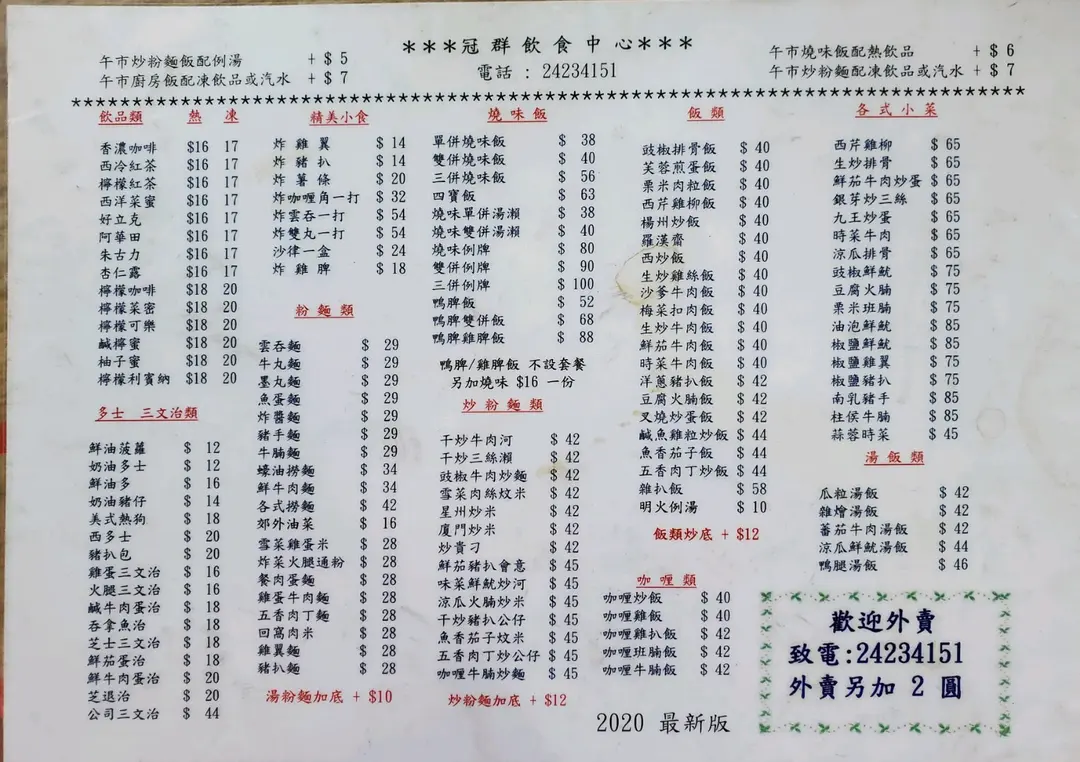 ***冠群飲食中心***
電話 : 24234151
午市炒粉麵飯配例湯 + $ 5
午市廚房飯配凍飲品或汽水 + $ 7
午市燒味飯配熱飲品 + $ 6
午市炒粉麵配凍飲品或汽水 + $ 7
飲品類 熱 凍
香濃咖啡 $16 17
西冷紅茶 $16 17
檸檬紅茶 $16 17
西洋菜蜜 $16 17
好立克 $16 17
阿華田 $16 17
朱古力 $16 17
杏仁露 $16 17
檸檬咖啡 $18 20
檸檬菜密 $18 20
檸檬可樂 $18 20
鹹檸蜜 $18 20
柚子蜜 $18 20
檸檬利賓納 $18 20
多士 三文治類
鮮油菠蘿 $ 12
奶油多士 $ 12
鮮油多 $ 16
奶油豬仔 $ 14
美式熱狗 $ 18
西多士 $ 20
豬扒包 $ 20
雞蛋三文治 $ 16
火腿三文治 $ 16
鹹牛肉蛋治 $ 18
吞拿魚治 $ 18
芝士三文治 $ 18
鮮茄蛋治 $ 18
鮮牛肉蛋治 $ 20
芝退治 $ 20
公司三文治 $ 44
精美小食
炸雞翼 $ 14
炸豬扒 $ 14
炸薯條 $ 20
炸咖喱角一打 $ 32
炸雲吞一打 $ 54
炸雙丸一打 $ 54
沙律一盒 $ 24
炸雞脾 $ 18
粉麵類
雲吞麵 $ 29
牛丸麵 $ 29
墨丸麵 $ 29
魚蛋麵 $ 29
炸醬麵 $ 29
豬手麵 $ 29
牛腩麵 $ 29
蠔油撈麵 $ 34
鮮牛肉麵 $ 34
各式撈麵 $ 42
郊外油菜 $ 16
雪菜雞蛋米 $ 28
炸菜火腿通粉 $ 28
餐肉蛋麵 $ 28
雞蛋牛肉麵 $ 28
五香肉丁麵 $ 28
回窩肉米 $ 28
雞翼麵 $ 28
豬扒麵 $ 28
湯粉麵加底 + $10
燒味飯
單併燒味飯 $ 38
雙併燒味飯 $ 40
三併燒味飯 $ 56
四寶飯 $ 63
燒味單併湯瀨 $ 38
燒味雙併湯瀨 $ 40
燒味例牌 $ 80
雙併例牌 $ 90
三併例牌 $ 100
鴨脾飯 $ 52
鴨脾雙併飯 $ 68
鴨脾雞脾飯 $ 88
鴨脾/雞脾飯 不設套餐
另加燒味 $16 一份
炒粉麵類
干炒牛肉河 $ 42
干炒三絲瀨 $ 42
豉椒牛肉炒麵 $ 42
雪菜肉絲炆米 $ 42
星州炒米 $ 42
廈門炒米 $ 42
炒貴刁 $ 42
鮮茄豬扒會意 $ 45
味菜鮮魷炒河 $ 45
涼瓜火腩炒米 $ 45
干炒豬扒公仔 $ 45
魚香茄子炆米 $ 45
五香肉丁炒公仔 $ 45
咖喱牛腩炒麵 $ 45
炒粉麵加底 + $12
飯類
豉椒排骨飯 $ 40
芙蓉煎蛋飯 $ 40
栗米肉粒飯 $ 40
西芹雞柳飯 $ 40
楊州炒飯 $ 40
羅漢齋 $ 40
西炒飯 $ 40
生炒雞絲飯 $ 40
沙爹牛肉飯 $ 40
梅菜扣肉飯 $ 40
生炒牛肉飯 $ 40
鮮茄牛肉飯 $ 40
時菜牛肉飯 $ 40
洋蔥豬扒飯 $ 42
豆腐火腩飯 $ 42
叉燒炒蛋飯 $ 42
鹹魚雞粒炒飯 $ 44
魚香茄子飯 $ 44
五香肉丁炒飯 $ 44
雜扒飯 $ 58
明火例湯 $ 10
飯類炒底 + $12
咖喱類
咖喱炒飯 $ 40
咖喱雞飯 $ 40
咖喱雞扒飯 $ 42
咖喱班腩飯 $ 42
咖喱牛腩飯 $ 42
各式小菜
西芹雞柳 $ 65
生炒排骨 $ 65
鮮茄牛肉炒蛋 $ 65
銀芽炒三絲 $ 65
九王炒蛋 $ 65
時菜牛肉 $ 65
涼瓜排骨 $ 65
豉椒鮮魷 $ 75
豆腐火腩 $ 75
栗米班腩 $ 75
油泡鮮魷 $ 85
椒鹽鮮魷 $ 85
椒鹽雞翼 $ 75
椒鹽豬扒 $ 75
南乳豬手 $ 85
柱侯牛腩 $ 85
蒜蓉時菜 $ 45
湯飯類
瓜粒湯飯 $ 42
雜燴湯飯 $ 42
蕃茄牛肉湯飯 $ 42
涼瓜鮮魷湯飯 $ 44
鴨腿湯飯 $ 46
歡迎外賣
致電:24234151
外賣另加 2 圓
2020 最新版